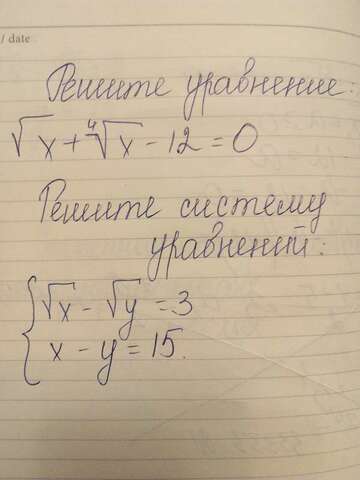 / date
Решите уравнение:
√x + ⁴√x - 12 = 0
Решите систему
уравнений:
{ √x - √y = 3
x - y = 15.